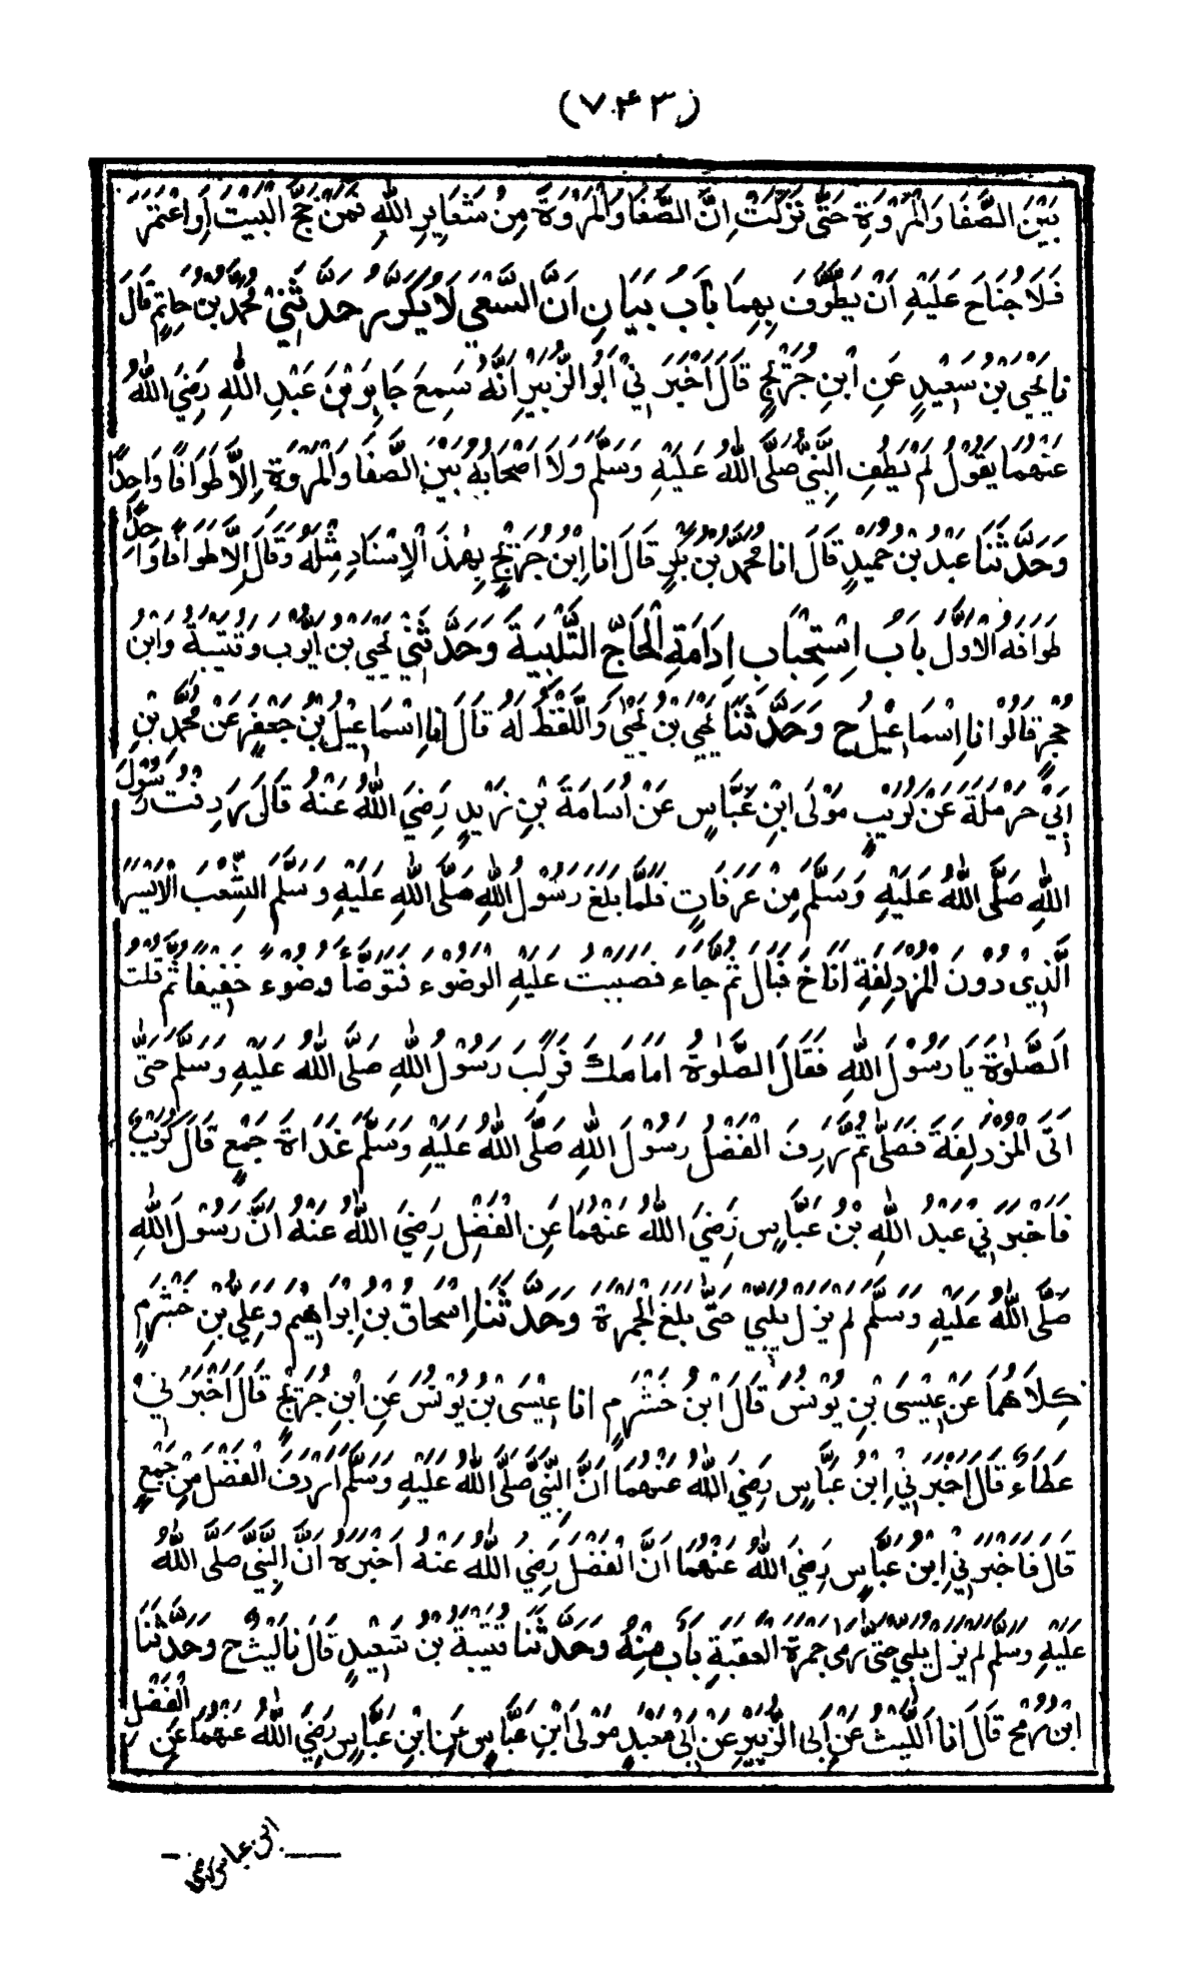 (۷۴۳)
بَيْنَ الصَّفَا وَالْمَرْوَةِ حَتّٰى نَزَلَتْ اِنَّ الصَّفَا وَالْمَرْوَةَ مِنْ شَعَايِرِ اللّٰهِ فَمَنْ حَجَّ الْبَيْتَ اَوِاعْتَمَرَ
فَلَا جُنَاحَ عَلَيْهِ اَنْ يَطَّوَّفَ بِهِمَا بَابُ بَيَانِ اَنَّ السَّعْيَ لَا يُكَرَّرُ حَدَّثَنِيْ مُحَمَّدُ بْنُ حَاتِمٍ قَالَ
نا يَحْيَى بْنُ سَعِيْدٍ عَنِ ابْنِ جُرَيْجٍ قَالَ اَخْبَرَنِيْ اَبُوالزُّبَيْرِ اَنَّهُ سَمِعَ جَابِرَ بْنَ عَبْدِ اللّٰهِ رَضِيَ اللّٰهُ
عَنْهُمَا يَقُوْلُ لَمْ يَطُفِ النَّبِيُّ صَلَّى اللّٰهُ عَلَيْهِ وَسَلَّمَ وَلَا اَصْحَابُهُ بَيْنَ الصَّفَا وَالْمَرْوَةِ اِلَّا طَوَافًا وَاحِدًا
وَحَدَّثَنَا عَبْدُ بْنُ حُمَيْدٍ قَالَ انا مُحَمَّدُ بْنُ بَكْرٍ قَالَ انا ابْنُ جُرَيْجٍ بِهٰذَ الْاِسْنَادِ مِثْلَهُ وَقَالَ اِلَّا طَوَافًا وَاحِدًا
طَوَافَهُ الْاَوَّلَ بَابُ اسْتِحْبَابِ اِدَامَةِ الْحَاجِّ التَّلْبِيَةَ وَحَدَّثَنِيْ يَحْيَى بْنُ اَيُّوْبَ وَقُتَيْبَةُ وَابْنُ
حُجْرٍ قَالُوْا نا اِسْمَاعِيْلُ ح وَحَدَّثَنَا يَحْيَى بْنُ يَحْيٰى وَاللَّفْظُ لَهُ قَالَ انا اِسْمَاعِيْلُ بْنُ جَعْفَرٍ عَنْ مُحَمَّدِ بْنِ
اَبِيْ حَرْمَلَةَ عَنْ كُرَيْبٍ مَوْلَى ابْنِ عَبَّاسٍ عَنْ اُسَامَةَ بْنِ زَيْدٍ رَضِيَ اللّٰهُ عَنْهُ قَالَ رَدِفْتُ رَسُوْلَ
اللّٰهِ صَلَّى اللّٰهُ عَلَيْهِ وَسَلَّمَ مِنْ عَرَفَاتٍ فَلَمَّا بَلَغَ رَسُوْلُ اللّٰهِ صَلَّى اللّٰهِ عَلَيْهِ وَسَلَّمَ الشِّعْبَ الْاَيْسَرَ
الَّذِيْ دُوْنَ الْمُزْدَلِفَةِ اَنَاخَ فَبَالَ ثُمَّ جَاءَ فَصَبَبْتُ عَلَيْهِ الْوَضُوْءَ فَتَوَضَّأَ وُضُوْءً خَفِيْفًا ثُمَّ قُلْتُ
الصَّلٰوةَ يَا رَسُوْلَ اللّٰهِ فَقَالَ الصَّلٰوةُ اَمَامَكَ فَرَكِبَ رَسُوْلُ اللّٰهِ صَلَّى اللّٰهُ عَلَيْهِ وَسَلَّمَ حَتّٰى
اَتَى الْمُزْدَلِفَةَ فَصَلّٰى ثُمَّ رَدِفَ الْفَضْلُ رَسُوْلَ اللّٰهِ صَلَّى اللّٰهُ عَلَيْهِ وَسَلَّمَ غَدَاةَ جَمْعٍ قَالَ كُرَيْبٌ
فَاَخْبَرَنِيْ عَبْدُ اللّٰهِ بْنُ عَبَّاسٍ رَضِيَ اللّٰهُ عَنْهُمَا عَنِ الْفَضْلِ رَضِيَ اللّٰهُ عَنْهُ اَنَّ رَسُوْلَ اللّٰهِ
صَلَّى اللّٰهُ عَلَيْهِ وَسَلَّمَ لَمْ يَزَلْ يُلَبِّيْ حَتّٰى بَلَغَ الْجَمْرَةَ وَحَدَّثَنَا اِسْحَاقُ بْنُ اِبْرَاهِيْمَ وَعَلِيُّ بْنُ خَشْرَمٍ
كِلَاهُمَا عَنْ عِيْسَى بْنِ يُوْنُسَ قَالَ ابْنُ خَشْرَمٍ انا عِيْسَى بْنُ يُوْنُسَ عَنِ ابْنِ جُرَيْجٍ قَالَ اَخْبَرَنِيْ
عَطَاءٌ قَالَ اَخْبَرَنِي ابْنُ عَبَّاسٍ رَضِيَ اللّٰهُ عَنْهُمَا اَنَّ النَّبِيَّ صَلَّى اللّٰهُ عَلَيْهِ وَسَلَّمَ اَرْدَفَ الْفَضْلَ مِنْ جَمْعٍ
قَالَ فَاَخْبَرَنِي ابْنُ عَبَّاسٍ رَضِيَ اللّٰهُ عَنْهُمَا اَنَّ الْفَضْلَ رَضِيَ اللّٰهُ عَنْهُ اَخْبَرَهُ اَنَّ النَّبِيَّ صَلَّى اللّٰهُ
عَلَيْهِ وَسَلَّمَ لَمْ يَزَلْ يُلَبِّي حَتّٰى رَمٰى جَمْرَةَ الْعَقَبَةِ بَابٌ مِنْهُ وَحَدَّثَنَا قُتَيْبَةُ بْنُ سَعِيْدٍ قَالَ نا لَيْثٌ ح وَحَدَّثَنَا
ابْنُ رُمْحٍ قَالَ انا اللَّيْثُ عَنْ اَبِى الزُّبَيْرِ عَنْ اَبِيْ مَعْبَدٍ مَوْلَى ابْنِ عَبَّاسٍ عَنِ ابْنِ عَبَّاسٍ رَضِيَ اللّٰهُ عَنْهُمَا عَنِ الْفَضْلِ
ابن عباس